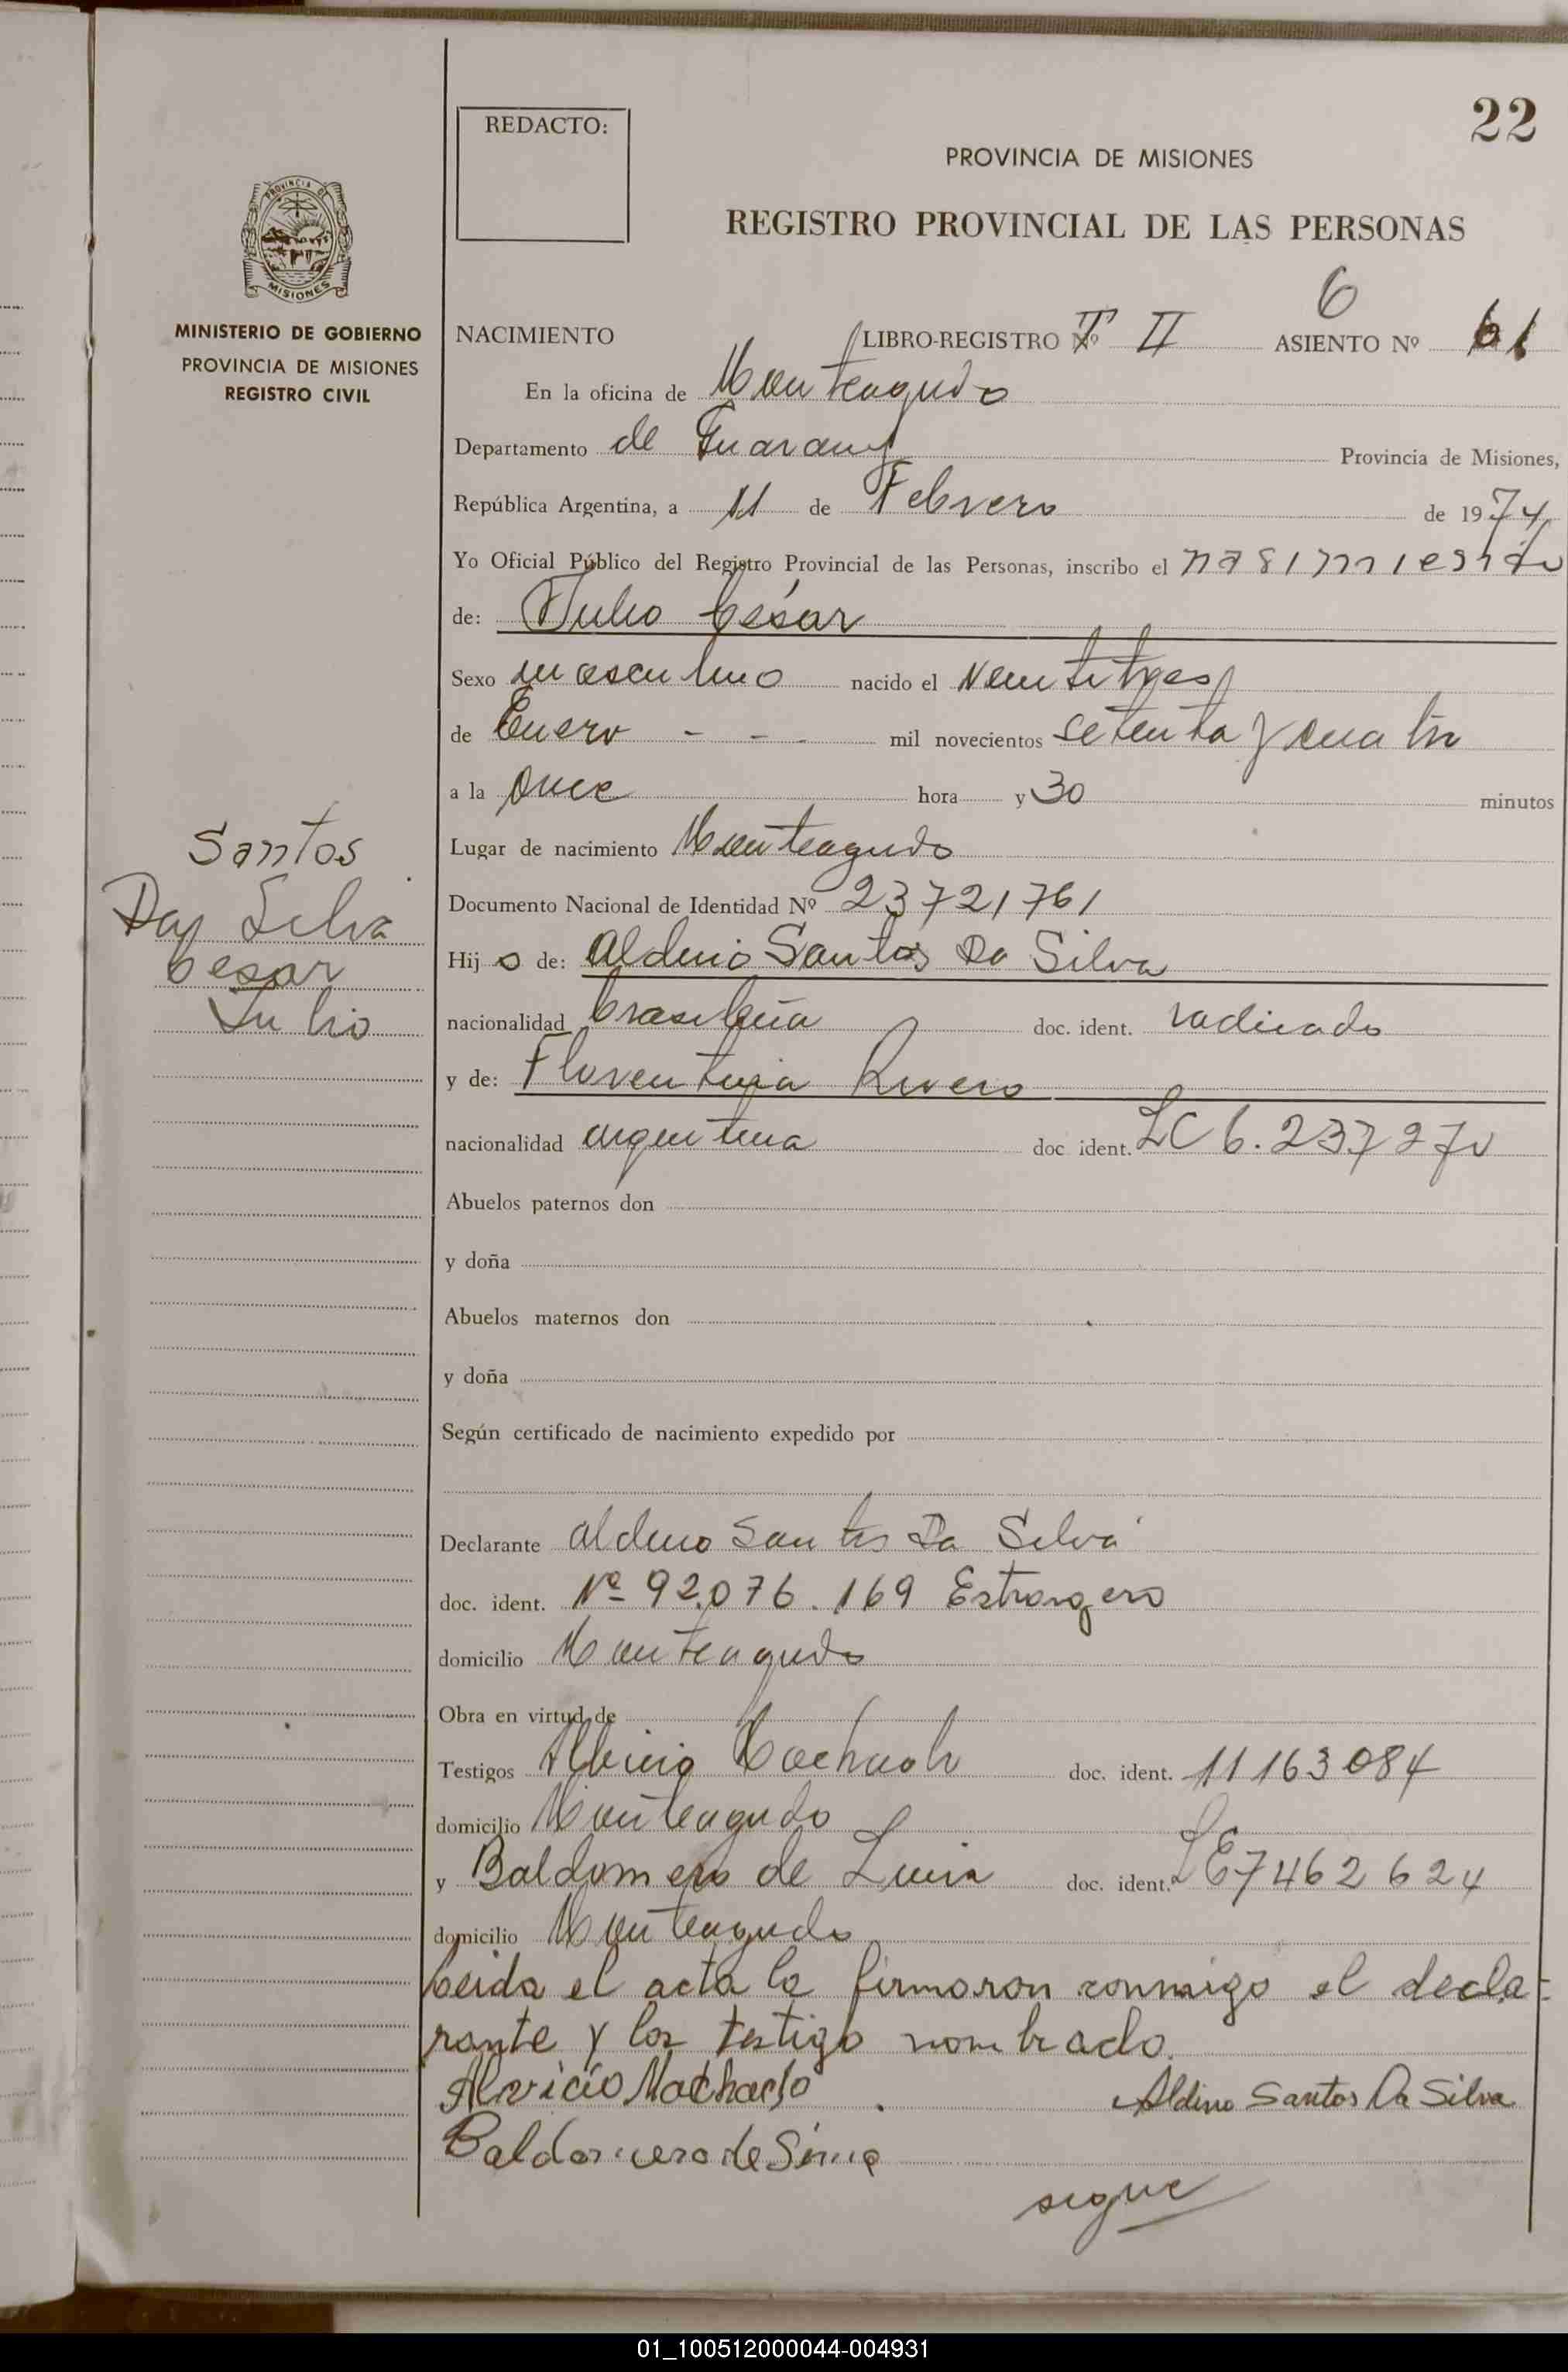 22
REDACTO:
PROVINCIA DE MISIONES
REGISTRO PROVINCIAL DE LAS PERSONAS
PROVINCIA DE
MISIONES
MINISTERIO DE GOBIERNO
PROVINCIA DE MISIONES
REGISTRO CIVIL
6
NACIMIENTO LIBRO-REGISTRO Nº T II ASIENTO Nº 61
En la oficina de Monteagudo
Departamento de Guarany Provincia de Misiones,
República Argentina, a 11 de Febrero de 1974
Yo Oficial Público del Registro Provincial de las Personas, inscribo el nasimiento
de: Julio César
Sexo masculino nacido el Veintitres
de Enero - - - mil novecientos setenta y cuatro
a la once hora y 30 minutos
Lugar de nacimiento Monteagudo
Documento Nacional de Identidad Nº 23721761
Hijo de: Aldino Santos Da Silva
nacionalidad brasileña doc. ident. radicado
y de: Florentina Rivero
nacionalidad argentina doc ident. LC 6.237270
Abuelos paternos don
y doña
Abuelos maternos don
y doña
Según certificado de nacimiento expedido por
Declarante Aldino Santos Da Silva
doc. ident. Nº 92.076.169 Estrangero
domicilio Monteagudo
Obra en virtud de
Testigos Machado doc. ident. 11163084
domicilio Monteagudo
y Baldomero de Lima doc. ident. LE7462624
domicilio Monteagudo
Leida el acta la firmaron conmigo el decla-
rante y los testigo nombrado.
Alvicio Machado Aldino Santos Da Silva
Baldomero de Lima
segue
Santos
Da Silva
Cesar
Julio
01_100512000044-004931